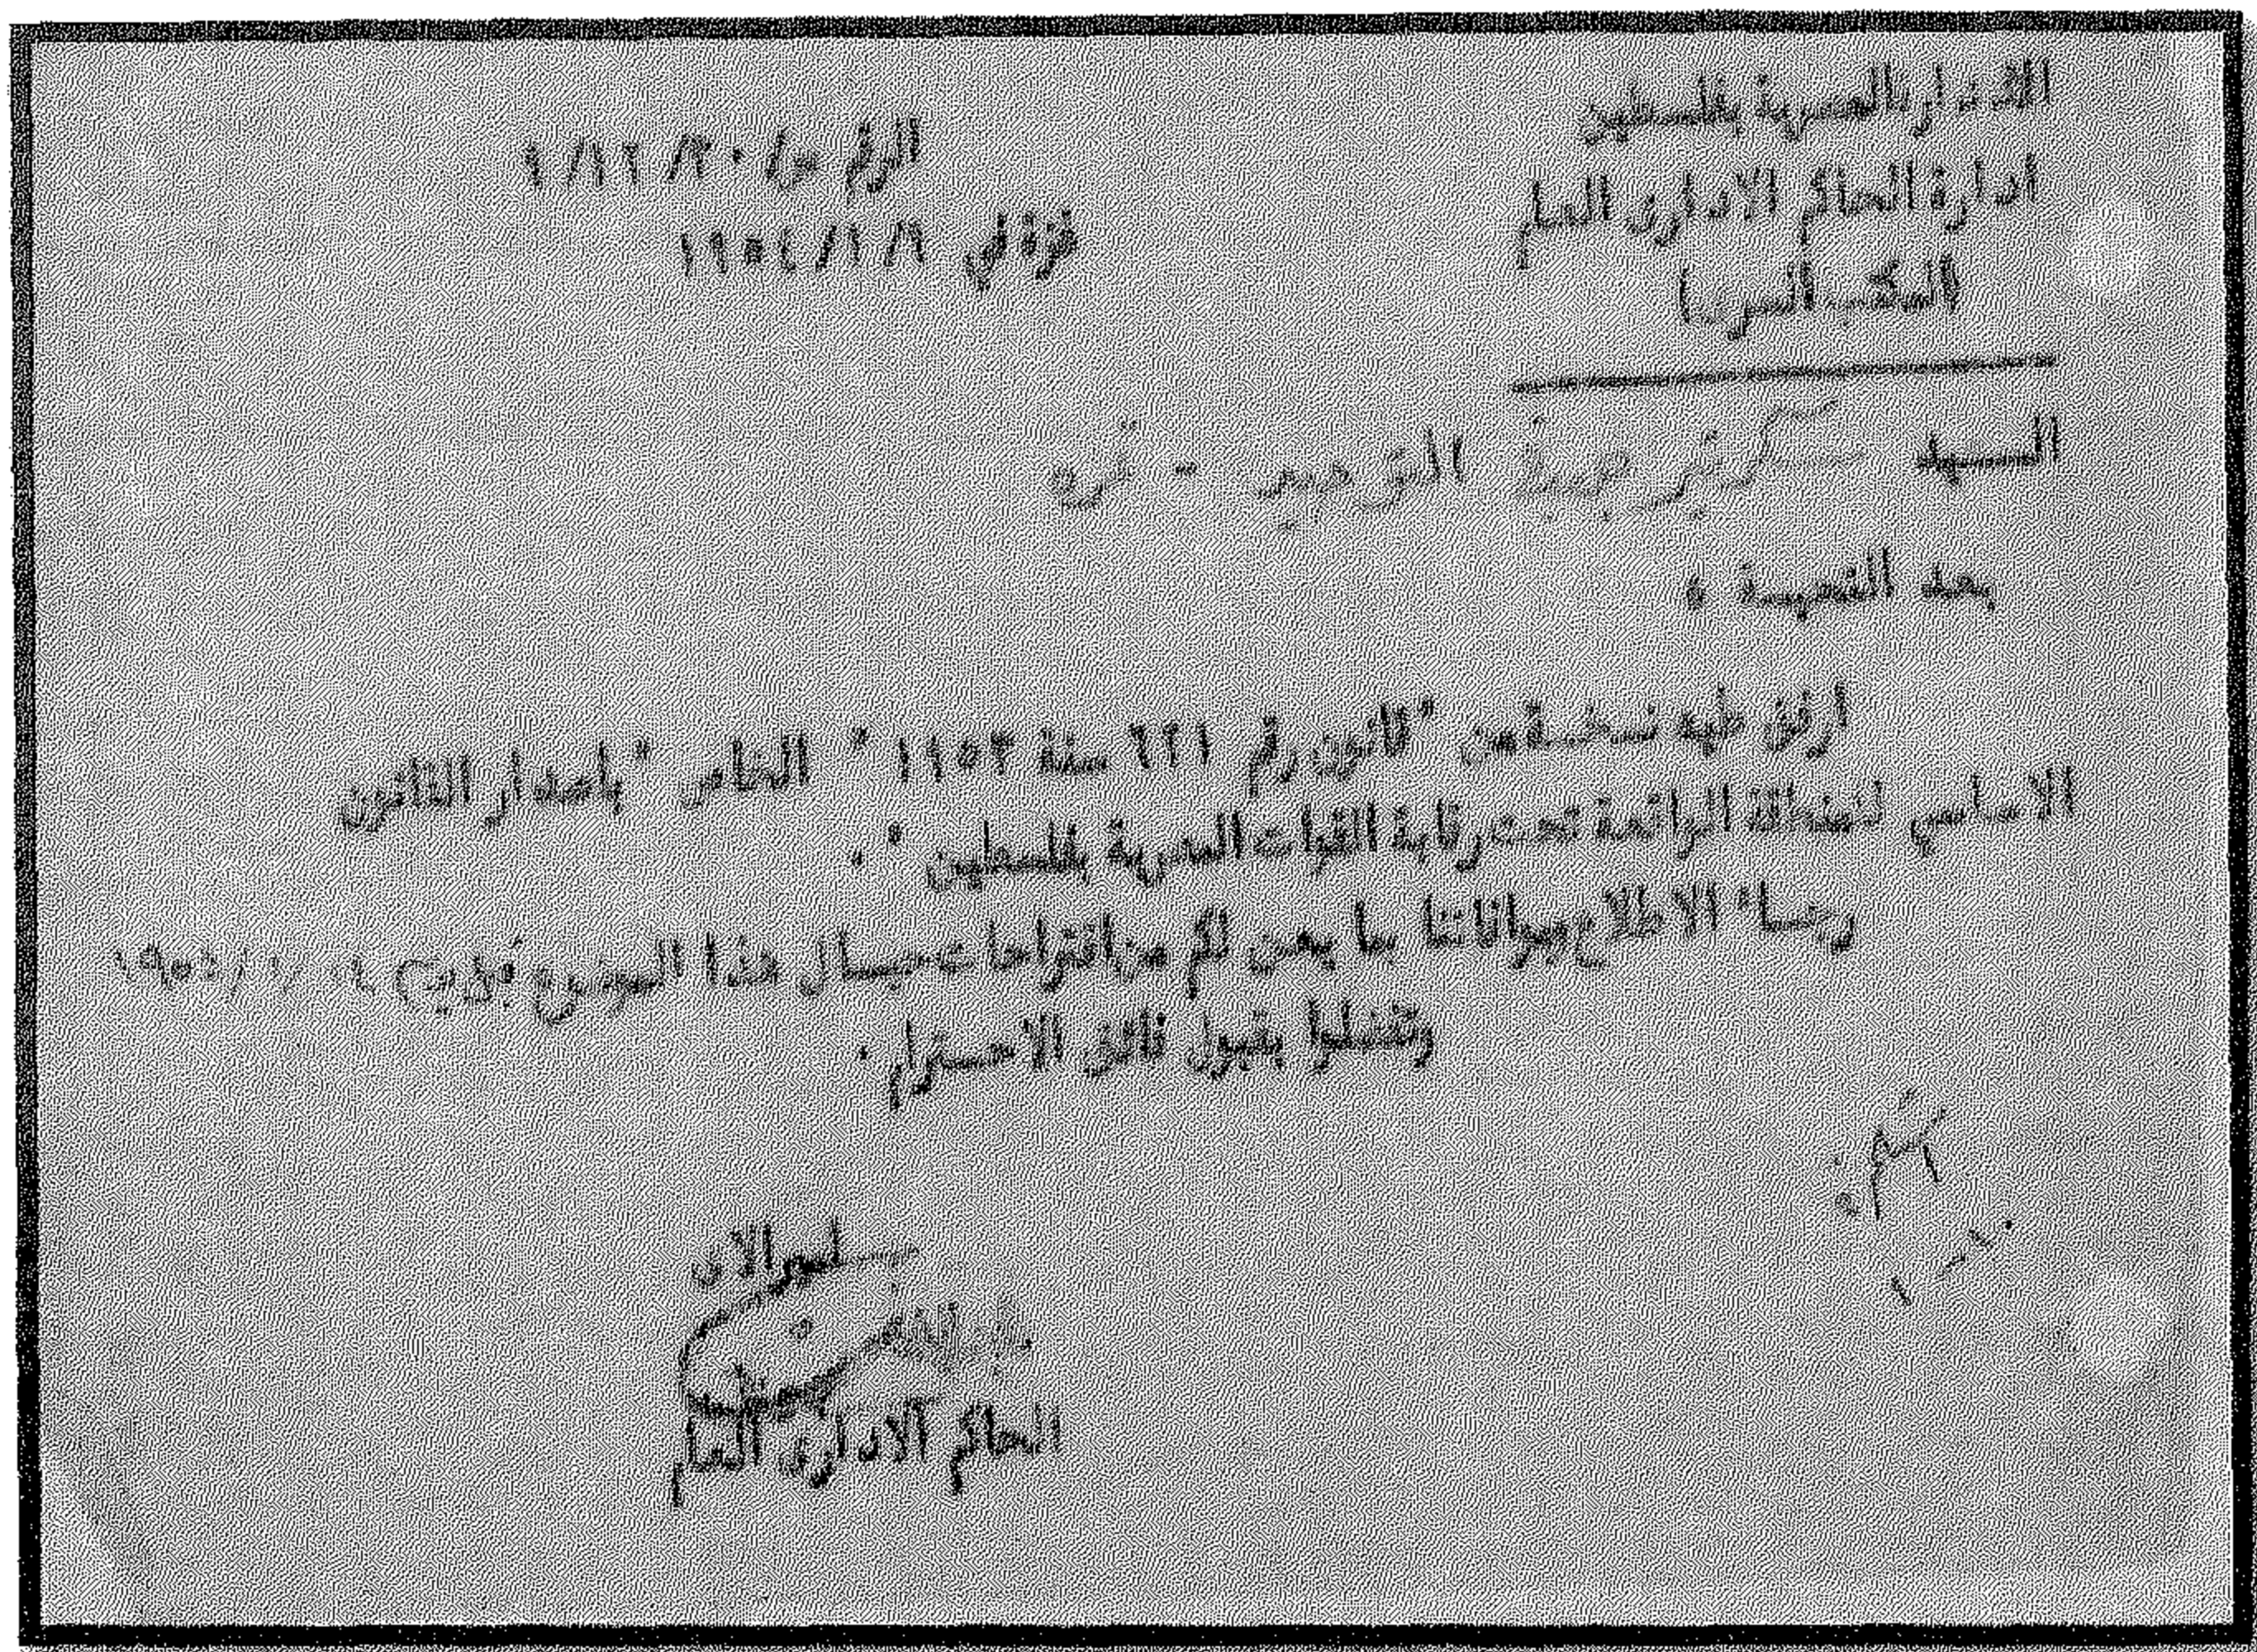 القيادة المصرية بفلسطين
ادارة الحاكم الادارى العام
المكتب السرى
الرقم س/٢٠/١٢/١
غزة في ٩/١/١٩٥٤
السيد سكرتير جمعية التوحيد - غزة
بعد التحية ،
ارفق طيه نسخة من "قانون رقم ٦٢١ سنة ١٩٥٣" الخاص "باصدار القانون
الاساسي للمنطقة الواقعة تحت رقابة القوات المصرية بفلسطين" .
رجاء الاطلاع وموافاتنا بما يعن لكم من اقتراحات حيال هذا الموضوع
وتفضلوا بقبول فائق الاحترام .
اميرالاى
الحاكم الادارى العام